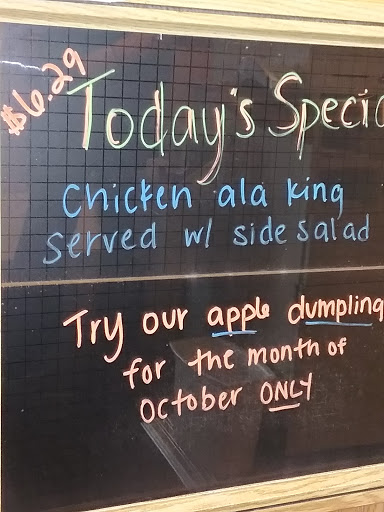 $6.29
Today's Specia
Chicken ala king
served w/ side salad
Try our apple dumpling
for the month of
October ONLY